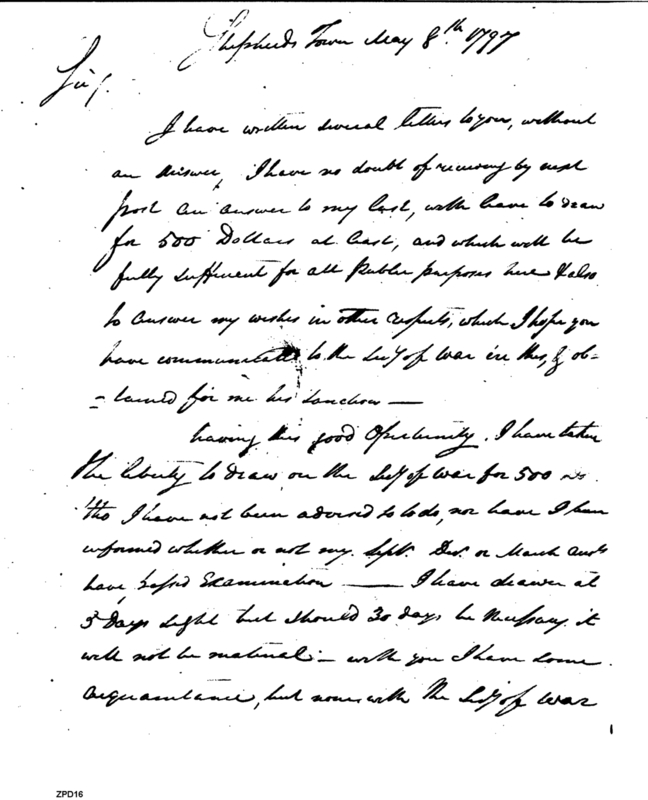 Shepherds Town May 8th. 1797
Sir,
I have written several letters to you, without
an answer, I have no doubt of receiving by next
post an answer to my last, with leave to draw
for 500 Dollars at least, and which will be
fully sufficient for all Public purposes here & also
to answer my wishes in other respects, which I hope you
have communicated to the Secy of War in this, & ob-
-tained for me his Sanction —
having this good Opertunity, I have taken
the liberty to draw on the Secy of War for 500 Do.
'tho I have not been advised to do, nor have I been
informed whether or not my Sept. Decr. or March accts
have passed Examination — I have drawn at
5 days Sight but should 30 days be necessary it
will not be material — with you I have some
acquaintance, but none with the Secy of War
ZPD16